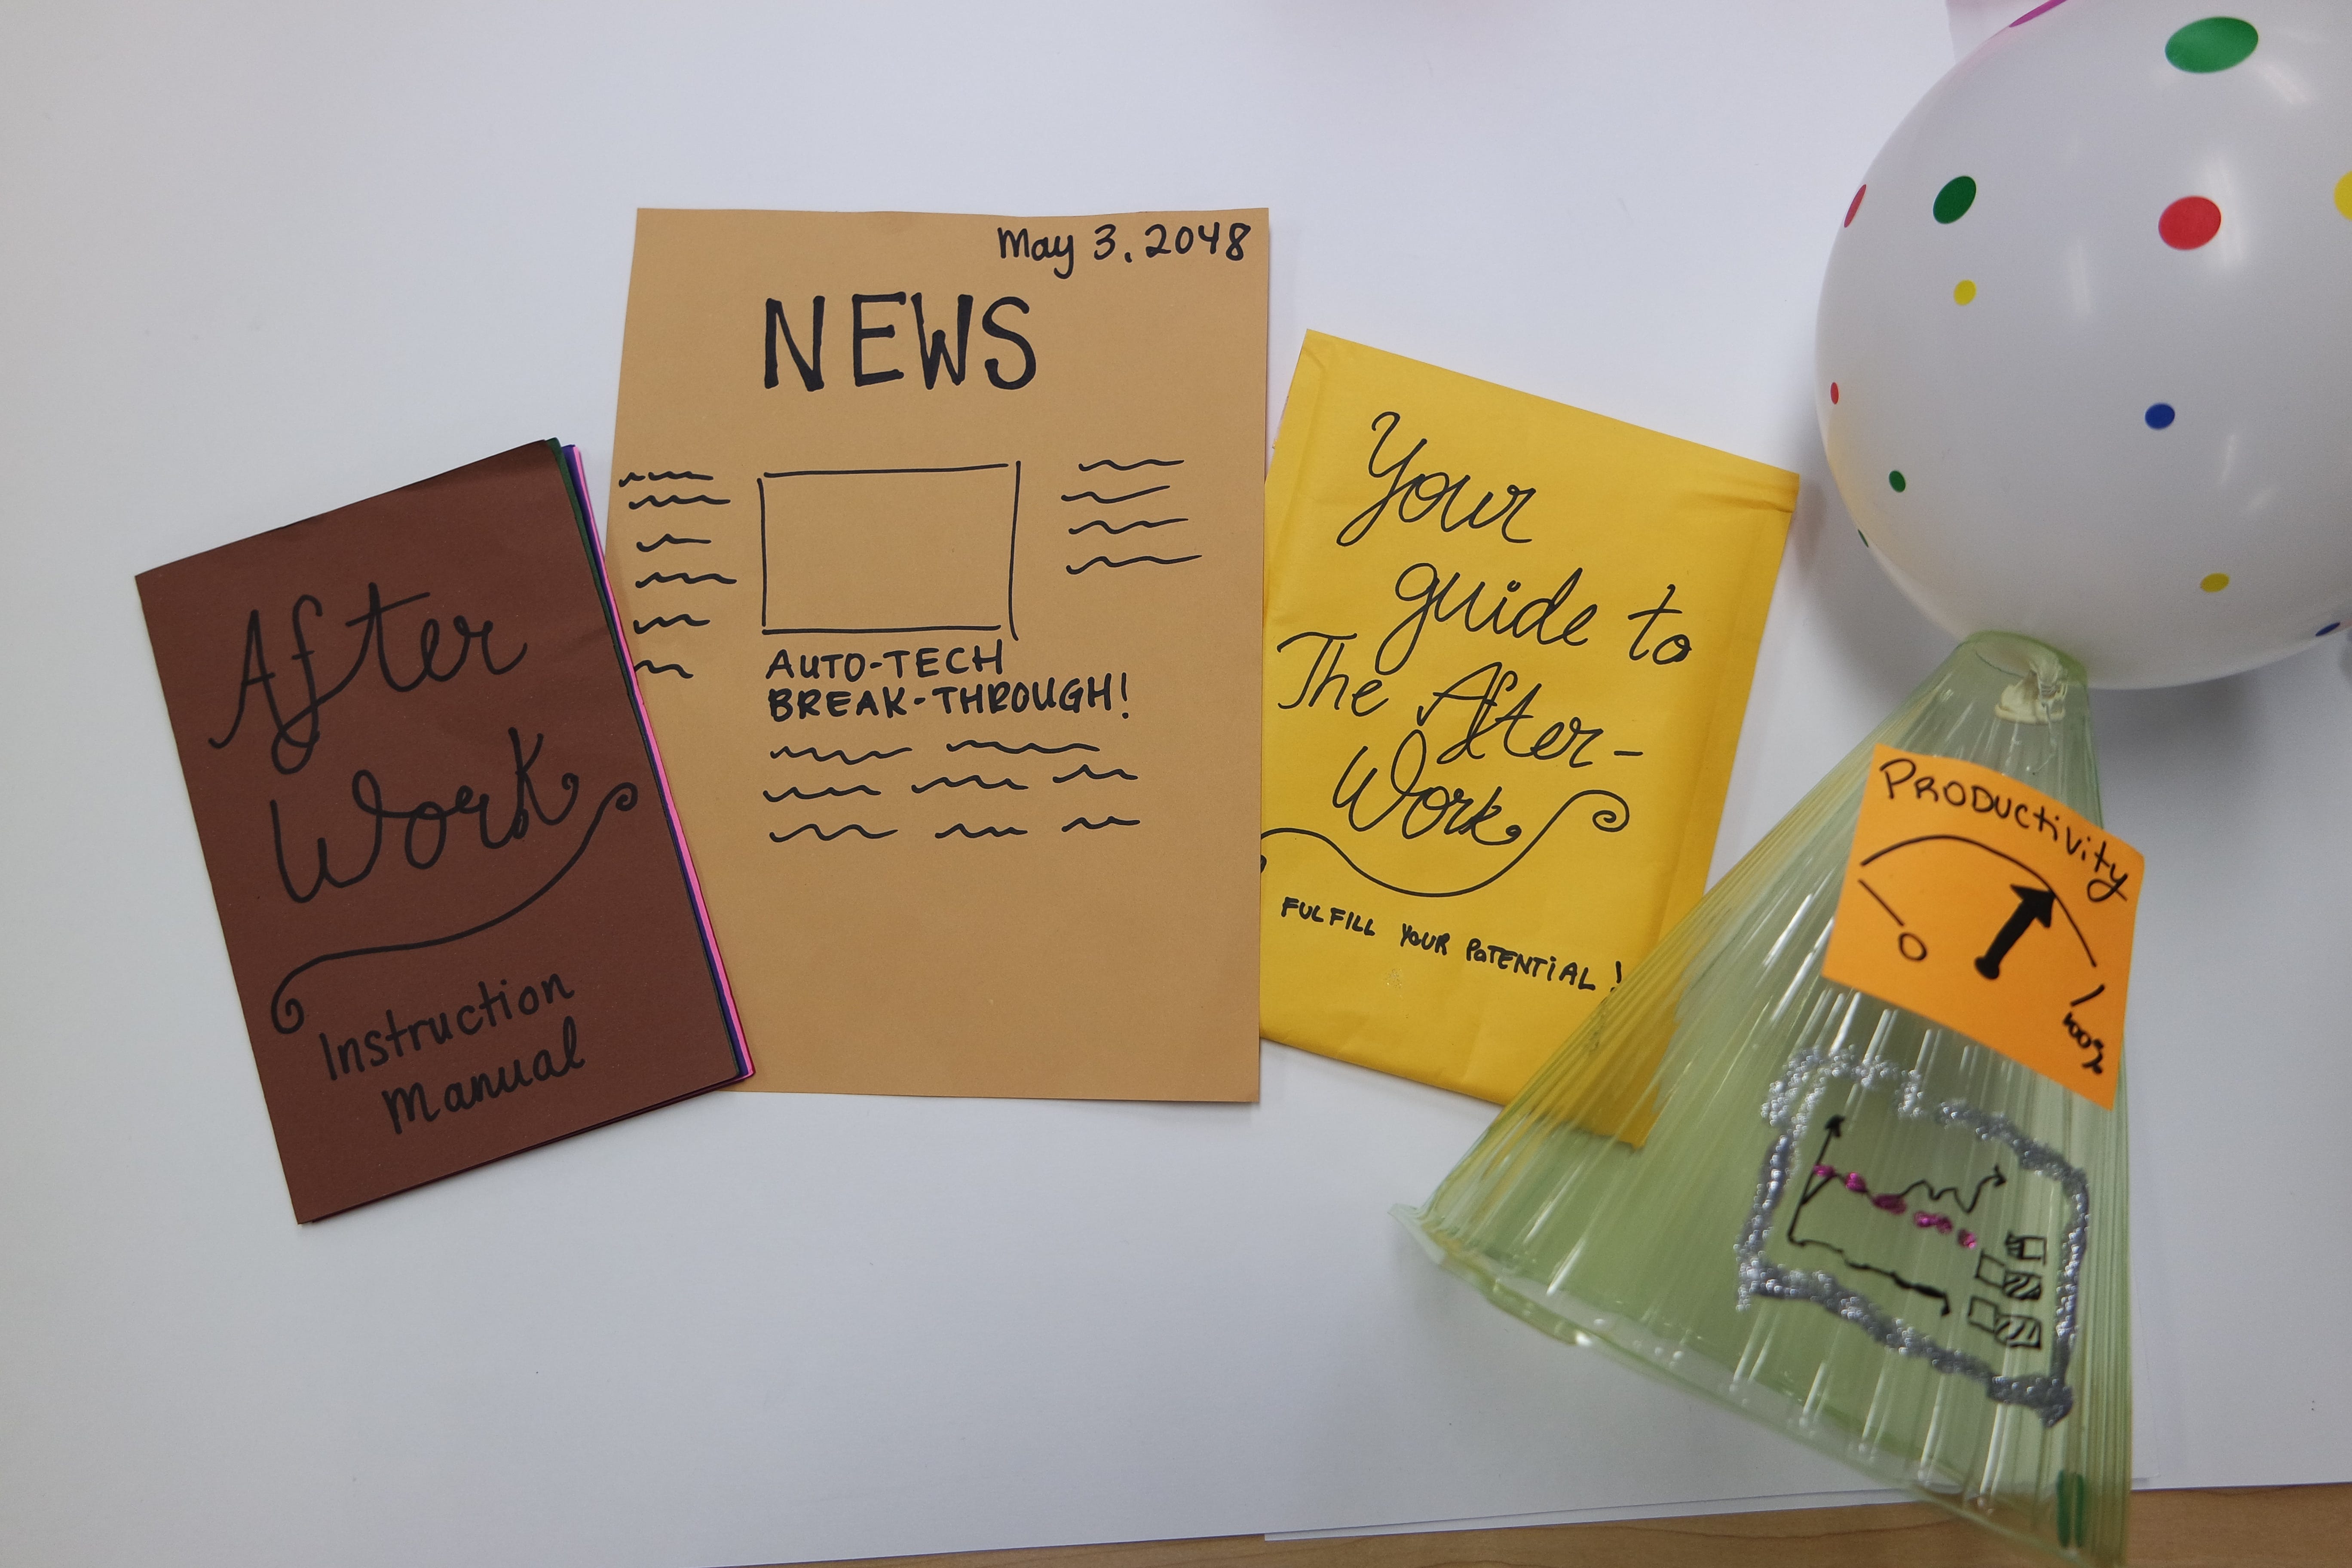 After
Work
Instruction
Manual
May 3, 2048
NEWS
AUTO-TECH
BREAK-THROUGH!
Your
guide to
The After-
Work
FULFILL YOUR POTENTIAL!
PRODUCtivity
0
100%